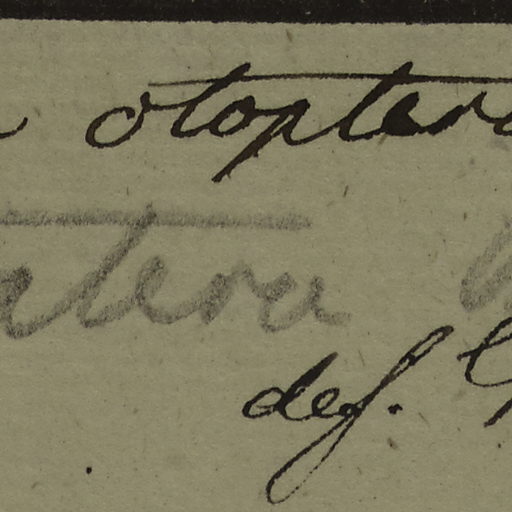 otoptera
ptera
def.